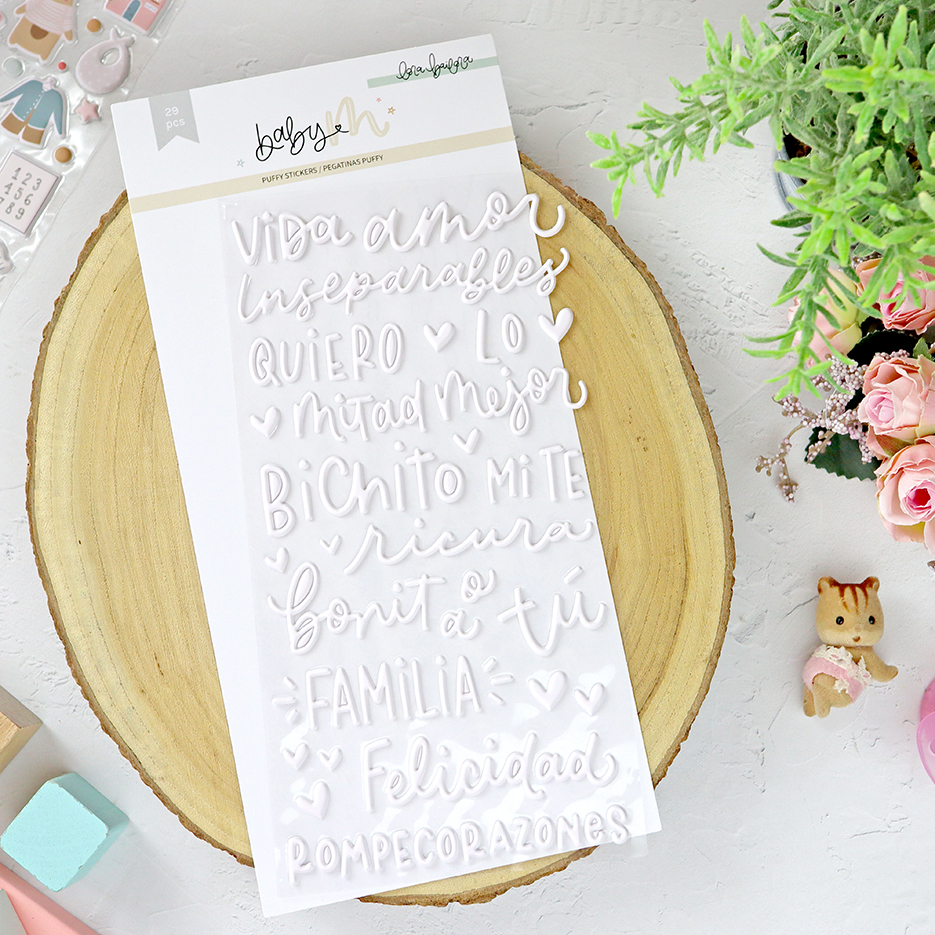 29
pcs
lora bailora
baby
PUFFY STICKERS / PEGATINAS PUFFY
ViDa amor
inseparables
QUIERO LO
mitad mejor
BiChito Mi TE
ricura
bonit a o tú
FAMiLiA
Felicidad
ROMPECORAZONes